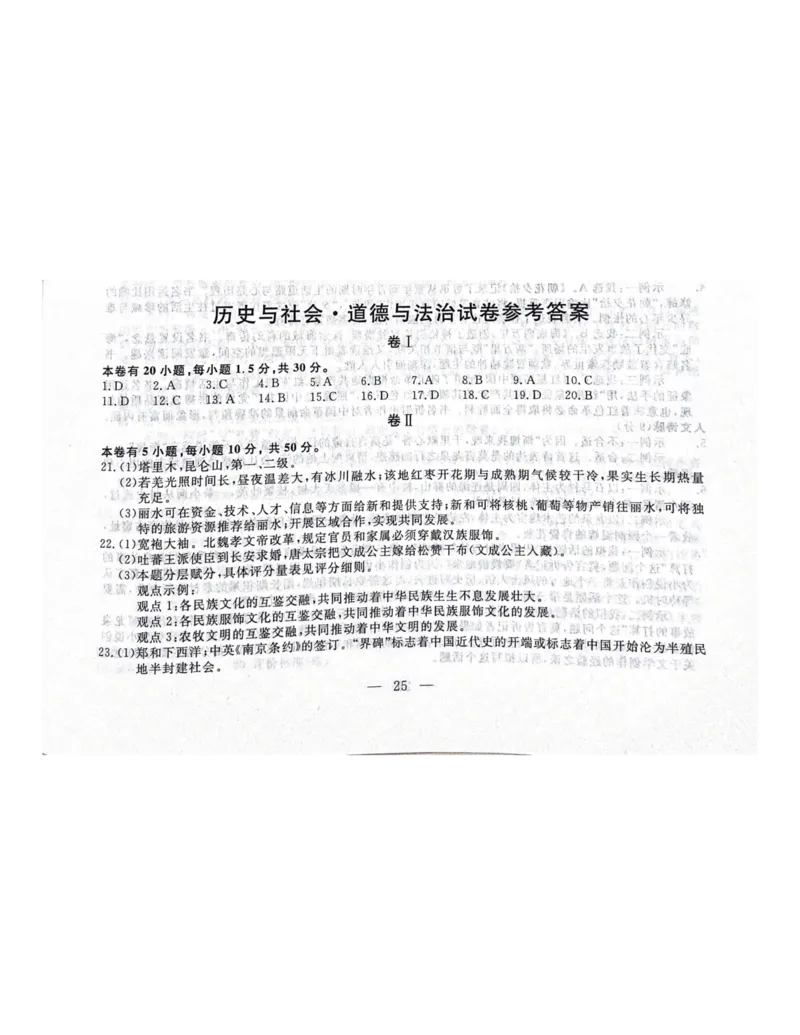 历史与社会·道德与法治试卷参考答案
卷Ⅰ
本卷有20小题,每小题1.5分,共30分。
1.D 2.A 3.C 4.B 5.A 6.B 7.A 8.B 9.A 10.C
11.D 12.C 13.A 14.B 15.C 16.D 17.D 18.C 19.D 20.B
卷Ⅱ
本卷有5小题,每小题10分,共50分。
21.(1)塔里木,昆仑山,第一、二级。
(2)若羌光照时间长,昼夜温差大,有冰川融水;该地红枣开花期与成熟期气候较干冷,果实生长期热量
充足。
(3)丽水可在资金、技术、人才、信息等方面给新和提供支持;新和可将核桃、葡萄等物产销往丽水,可将独
特的旅游资源推荐给丽水;开展区域合作,实现共同发展。
22.(1)宽袍大袖。北魏孝文帝改革,规定官员和家属必须穿戴汉族服饰。
(2)吐蕃王派使臣到长安求婚,唐太宗把文成公主嫁给松赞干布(文成公主入藏)。
(3)本题分层赋分,具体评分量表见评分细则。
观点示例:
观点1:各民族文化的互鉴交融,共同推动着中华民族生生不息发展壮大。
观点2:各民族服饰文化的互鉴交融,共同推动着中华民族服饰文化的发展。
观点3:农牧文明的互鉴交融,共同推动着中华文明的发展。
23.(1)郑和下西洋;中英《南京条约》的签订。“界碑”标志着中国近代史的开端或标志着中国开始沦为半殖民
地半封建社会。
— 25 —